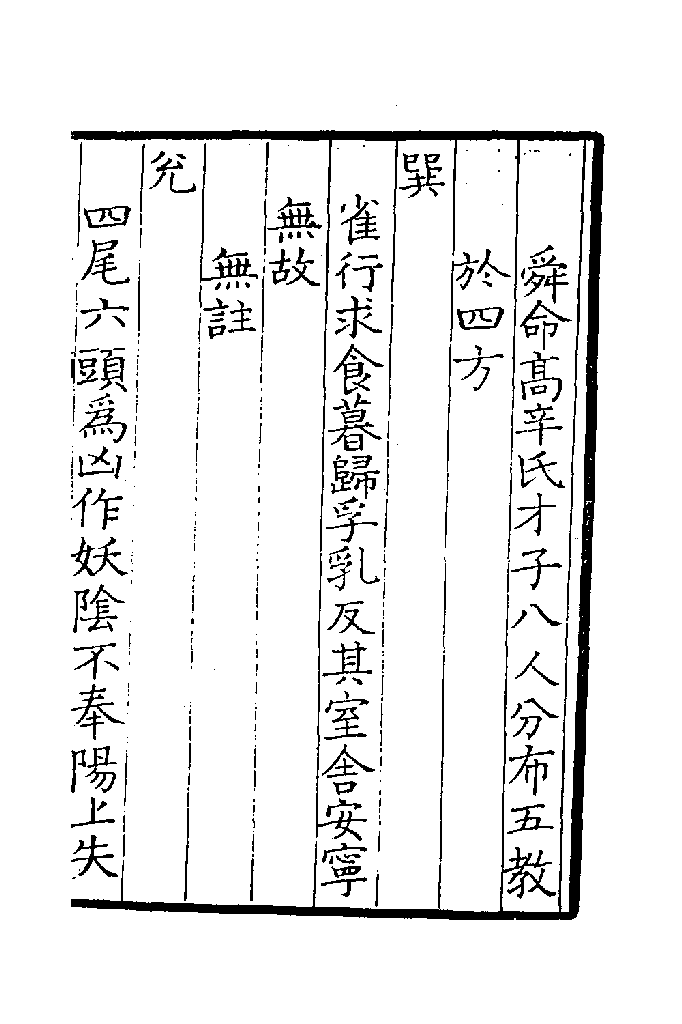 舜命高辛氏才子八人分布五教
於四方
巽
雀行求食暮歸孚乳反其室舎安寧
無故
無註
兊
四尾六頭為凶作妖隂不奉陽上失